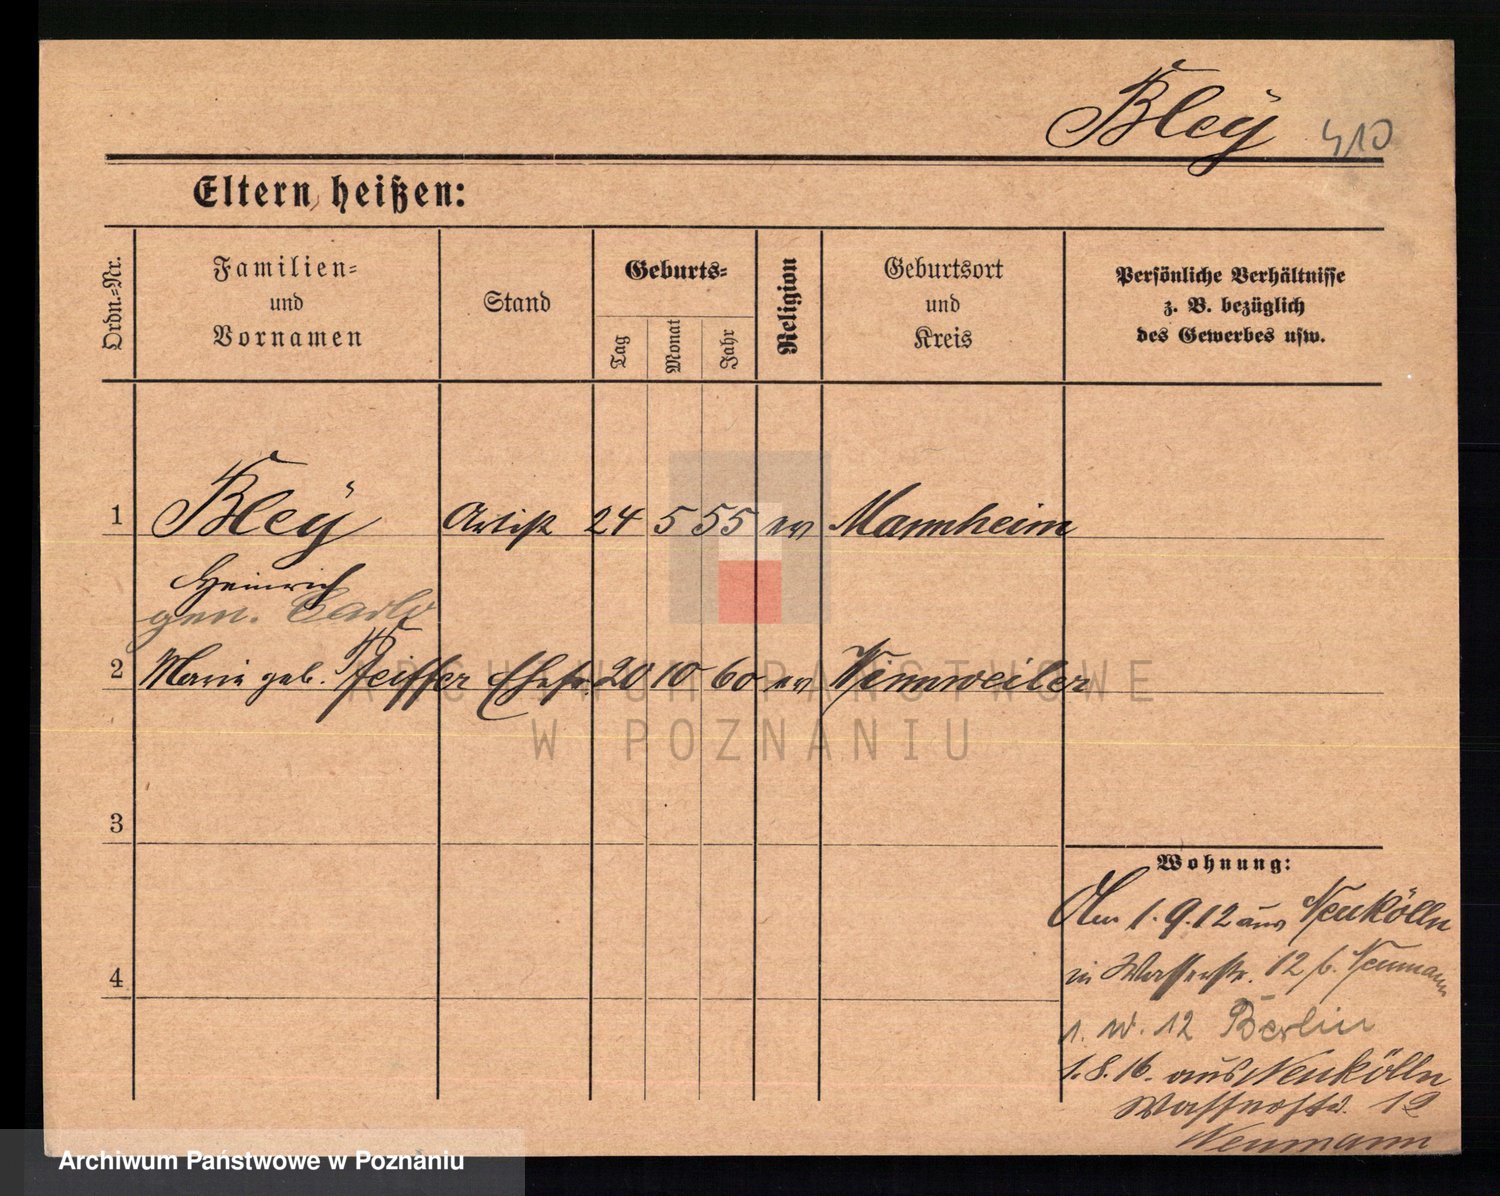 Bleÿ 410
Eltern heißen:
Ordn.=Nr.
Familien=
und
Vornamen
Stand
Geburts=
Tag
Monat
Jahr
Religion
Geburtsort
und
Kreis
Persönliche Verhältnisse
z. B. bezüglich
des Gewerbes usw.
1 Bleÿ Artist 24 5 55 ev Mannheim
Heinrich
gen. Carlo
2 Marie geb. Pfeiffer Ehefr. 20 10 60 ev Winnweiler
3
4
Wohnung:
Am 1.9.12 aus Neukölln
in Wasserstr. 12 b. Neumann
1. 12 Berlin
1.8.16. aus Neukölln
Wasserstr. 12
Neumann
ARCHIWUM PAŃSTWOWE
W POZNANIU
Archiwum Państwowe w Poznaniu